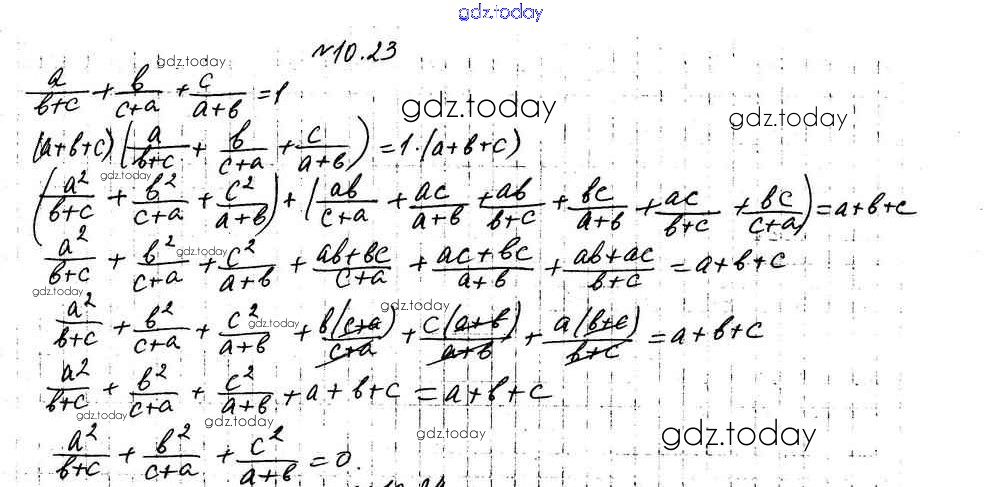 gdz.today
№10.23
gdz.today
a/(b+c) + b/(c+a) + c/(a+b) = 1
gdz.today
gdz.today
(a+b+c)(a/(b+c) + b/(c+a) + c/(a+b)) = 1·(a+b+c)
(a²/(b+c) + b²/(c+a) + c²/(a+b)) + (ab/(c+a) + ac/(a+b) + ab/(b+c) + bc/(a+b) + ac/(b+c) + bc/(c+a)) = a+b+c
gdz.today
a²/(b+c) + b²/(c+a) + c²/(a+b) + (ab+bc)/(c+a) + (ac+bc)/(a+b) + (ab+ac)/(b+c) = a+b+c
gdz.today
gdz.today
a²/(b+c) + b²/(c+a) + c²/(a+b) + b(c+a)/(c+a) + c(a+b)/(a+b) + a(b+c)/(b+c) = a+b+c
gdz.today
a²/(b+c) + b²/(c+a) + c²/(a+b) + a+b+c = a+b+c
gdz.today
gdz.today
gdz.today
gdz.today
a²/(b+c) + b²/(c+a) + c²/(a+b) = 0.